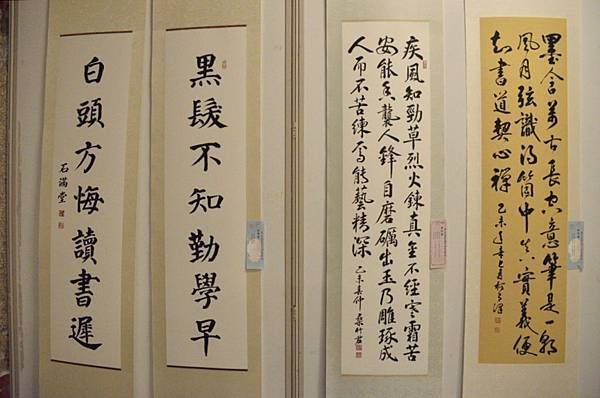 墨含萬古長空意筆是一朝
風月弦識得箇中真實義便
知書道契心禪
乙未
疾風知勁草烈火鍊真金不經寒霜苦
安能香襲人鋒自磨礪出玉乃雕琢成
人而不苦練焉能藝精深
乙未
黑髮不知勤學早
白頭方悔讀書遲
石滿堂